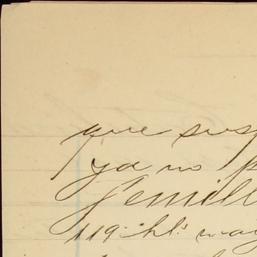 que sus
ya no p
semill
119 hl. may